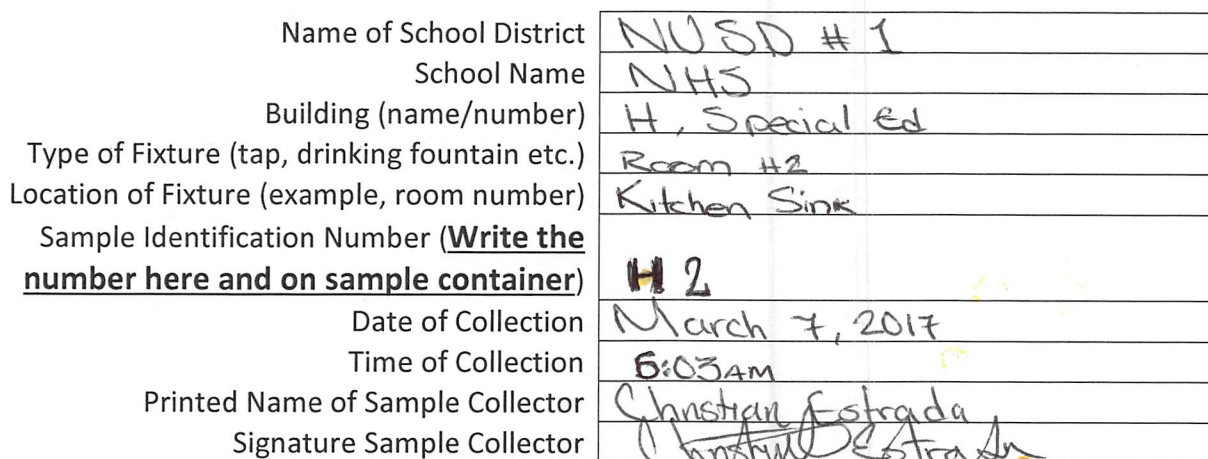 Name of School District NUSD # 1
School Name NHS
Building (name/number) H, Special Ed
Type of Fixture (tap, drinking fountain etc.) Room #2
Location of Fixture (example, room number) Kitchen Sink
Sample Identification Number (Write the
number here and on sample container) H 2
Date of Collection March 7, 2017
Time of Collection :03AM
Printed Name of Sample Collector Christian Estrada
Signature Sample Collector Christian Estrada